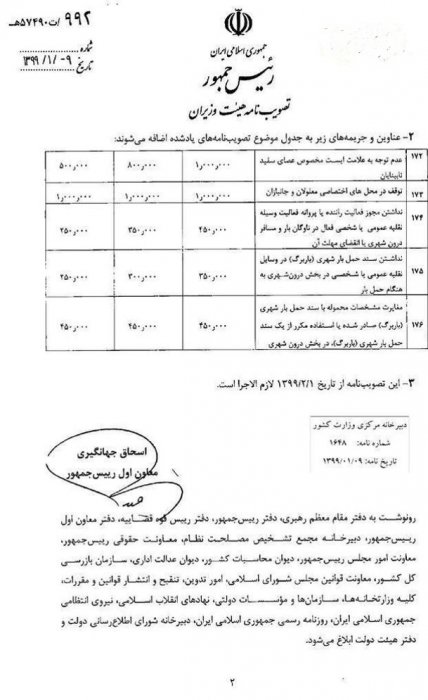 ۹۹۲/ت۵۷۴۹۰هـ
شماره
۱۳۹۹/۱/۰۹
تاریخ
جمهوری اسلامی ایران
رئیس جمهور
تصویب نامه هیئت وزیران
۲- عناوین و جریمه‌های زیر به جدول موضوع تصویب‌نامه‌های یادشده اضافه می‌شوند:
۱۷۲ عدم توجه به علامت ایست مخصوص عصای سفید نابینایان ۱٫۰۰۰٫۰۰۰ ۸۰۰٫۰۰۰ ۵۰۰٫۰۰۰
۱۷۳ توقف در محل های اختصاصی معلولان و جانبازان ۱٫۰۰۰٫۰۰۰ ۱٫۰۰۰٫۰۰۰ ۱٫۰۰۰٫۰۰۰
۱۷۴ نداشتن مجوز فعالیت راننده یا پروانه فعالیت وسیله
نقلیه عمومی یا شخصی فعال در ناوگان بار و مسافر ۴۵۰٫۰۰۰ ۳۵۰٫۰۰۰ ۲۵۰٫۰۰۰
درون شهری یا انقضای مهلت آن
۱۷۵ نداشتن سند حمل بار شهری (باربرگ) در وسایل
نقلیه عمومی یا شخصی در بخش درون‌شهری به ۳۵۰٫۰۰۰ ۳۰۰٫۰۰۰ ۲۵۰٫۰۰۰
هنگام حمل بار
۱۷۶ مغایرت مشخصات محموله با سند حمل بار شهری
(باربرگ) صادر شده یا استفاده مکرر از یک سند ۴۵۰٫۰۰۰ ۴۵۰٫۰۰۰ ۴۵۰٫۰۰۰
حمل بار شهری (باربرگ)، در بخش درون شهری
۳- این تصویب‌نامه از تاریخ ۱۳۹۹/۲/۱ لازم الاجرا است.
دبیرخانه مرکزی وزارت کشور
شماره نامه: ۱۶۴۸
تاریخ نامه: ۱۳۹۹/۰۱/۰۹
اسحاق جهانگیری
معاون اول رییس‌جمهور
رونوشت به دفتر مقام معظم رهبری، دفتر رییس‌جمهور، دفتر رییس قوه قضاییه، دفتر معاون اول
رییس‌جمهور، دبیرخانه مجمع تشخیص مصلحت نظام، معاونت حقوقی رییس‌جمهور،
معاونت امور مجلس رییس‌جمهور، دیوان محاسبات کشور، دیوان عدالت اداری، سازمان بازرسی
کل کشور، معاونت قوانین مجلس شورای اسلامی، امور تدوین، تنقیح و انتشار قوانین و مقررات،
کلیه وزارتخانه‌ها، سازمان‌ها و مؤسسات دولتی، نهادهای انقلاب اسلامی، نیروی انتظامی
جمهوری اسلامی ایران، روزنامه رسمی جمهوری اسلامی ایران، دبیرخانه شورای اطلاع‌رسانی دولت و
دفتر هیئت دولت ابلاغ می‌شود.
۲